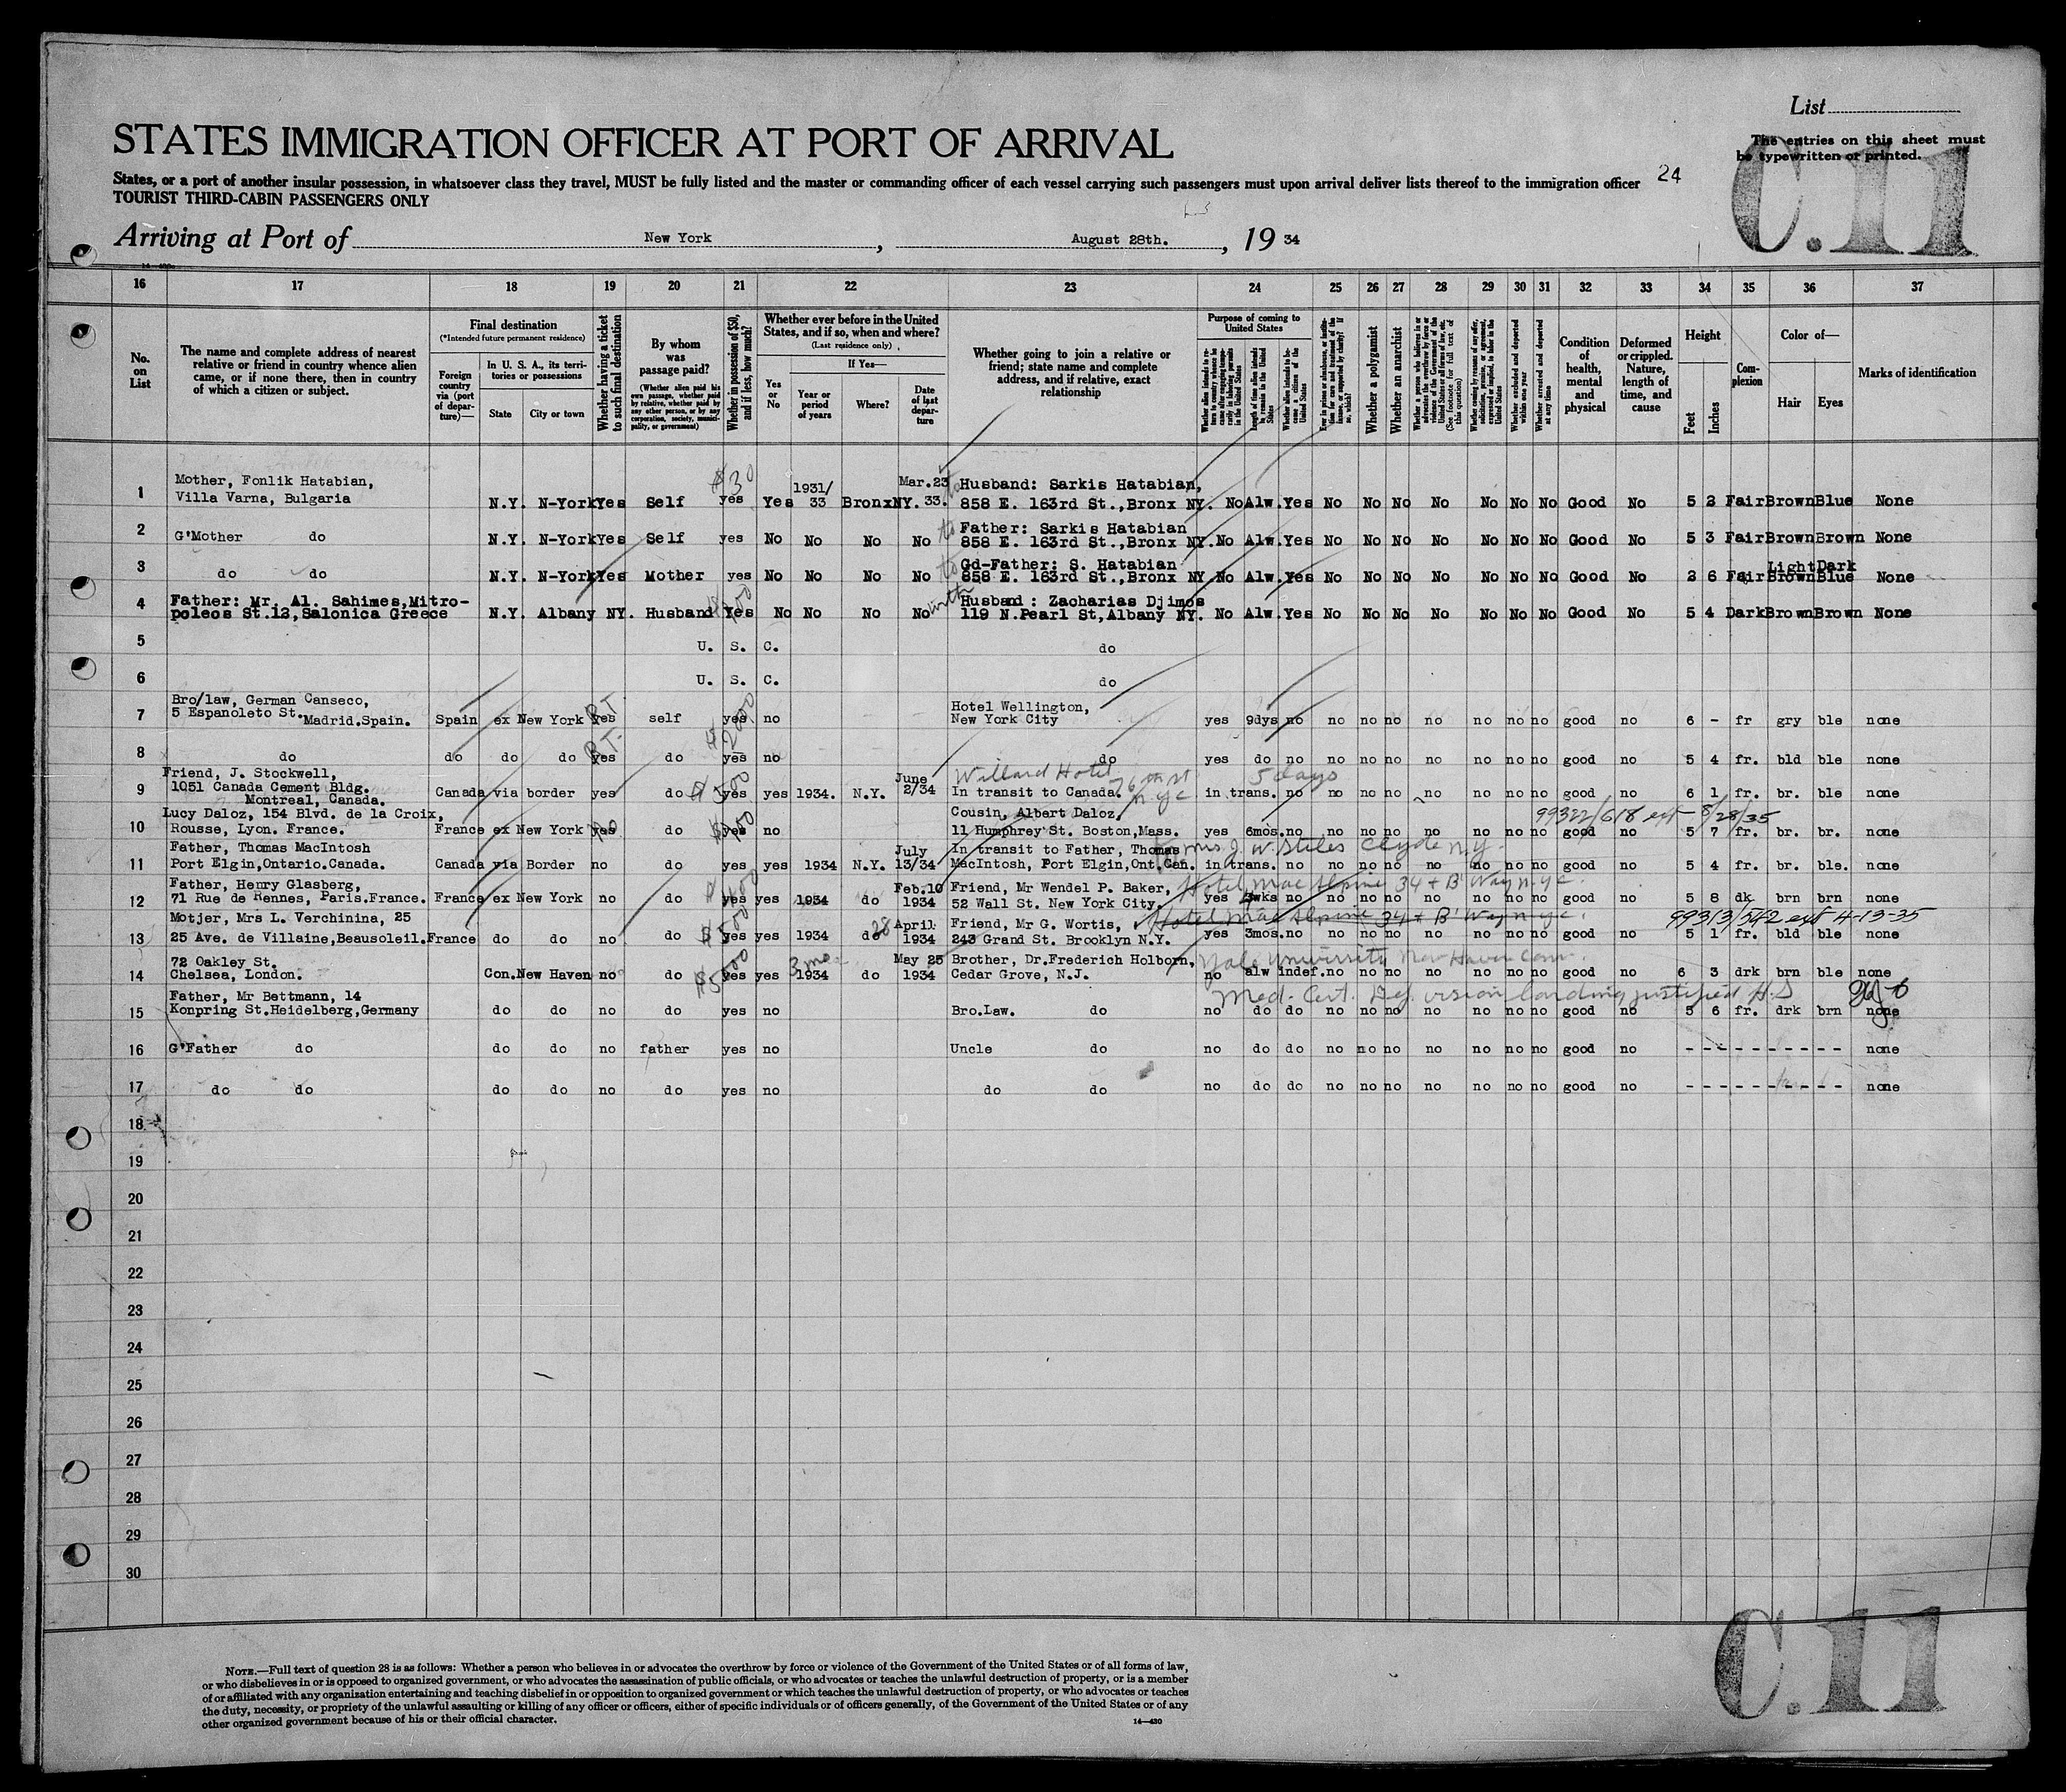 List
The entries on this sheet must
be typewritten or printed.
C.11
24
STATES IMMIGRATION OFFICER AT PORT OF ARRIVAL
States, or a port of another insular possession, in whatsoever class they travel, MUST be fully listed and the master or commanding officer of each vessel carrying such passengers must upon arrival deliver lists thereof to the immigration officer
TOURIST THIRD-CABIN PASSENGERS ONLY
Arriving at Port of New York, August 28th., 19 34
16 17 18 19 20 21 22 23 24 25 26 27 28 29 30 31 32 33 34 35 36 37
No. on List
The name and complete address of nearest
relative or friend in country whence alien
came, or if none there, then in country
of which a citizen or subject.
Final destination
(*Intended future permanent residence)
Foreign country via (port of departure)—
In U. S. A., its territories or possessions
State City or town
Whether having a ticket to such final destination
By whom was passage paid?
(Whether alien paid his own passage, whether paid by relative, whether paid by any other person, or by any corporation, society, municipality, or government)
Whether in possession of $50, and if less, how much?
Whether ever before in the United
States, and if so, when and where?
(Last residence only)
Yes or No
If Yes—
Year or period of years
Where?
Date of last departure
Whether going to join a relative or
friend; state name and complete
address, and if relative, exact
relationship
Purpose of coming to
United States
Whether alien intends to return to country whence he came after engaging temporarily in laboring pursuits in the United States
Length of time alien intends to remain in the United States
Whether alien intends to become a citizen of the United States
Ever in prison or almshouse, or institution for care and treatment of the insane, or supported by charity? If so, which?
Whether a polygamist
Whether an anarchist
(See footnote for full text of this question)
Whether coming by reason of any offer, solicitation, promise, or agreement, expressed or implied, to labor in the United States
Whether excluded and deported within one year
Whether arrested and deported at any time
Condition of health, mental and physical
Deformed or crippled. Nature, length of time, and cause
Height
Feet Inches
Complexion
Color of—
Hair Eyes
Marks of identification
Mother, Fonlik Hatabian, $30 1931/ Mar.23 to Husband: Sarkis Hatabian,
1 Villa Varna, Bulgaria N.Y. N-York Yes Self yes Yes 33 Bronx NY. 33. 858 E. 163rd St.,Bronx NY. No Alw. Yes No No No No No No No Good No 5 2 Fair Brown Blue None
2 to Father: Sarkis Hatabian
G'Mother do N.Y. N-York Yes Self yes No No No No 858 E. 163rd St.,Bronx NY. No Alw. Yes No No No No No No No Good No 5 3 Fair Brown Brown None
3 to Gd-Father: S. Hatabian Light Dark
do do N.Y. N-York Yes Mother yes No No No No 858 E. 163rd St.,Bronx NY No Alw. Yes No No No No No No No Good No 2 6 Fair Brown Blue None
4 Father: Mr. Al. Sahimes,Mitro- with Husband : Zacharias Djimos
poleos St.12,Salonica Greece N.Y. Albany NY. Husband Yes No No No No 119 N.Pearl St,Albany NY. No Alw. Yes No No No No No No No Good No 5 4 Dark Brown Brown None
5 U. S. C. do
6 U. S. C. do
Bro/law, German Canseco, R.T. $2000 Hotel Wellington,
7 5 Espanoleto St. Madrid.Spain. Spain ex New York yes self yes no New York City yes 9dys no no no no no no no no good no 6 - fr gry ble none
8 do do do do R.T. yes do yes no do yes do no no no no no no no no good no 5 4 fr. bld ble none
Friend, J. Stockwell, June Willard Hotel 5 days
9 1051 Canada Cement Bldg. $500 2/34 In transit to Canada. nyc
Montreal, Canada. Canada via border yes do yes yes 1934. N.Y. in trans. no no no no no no no no good no 6 1 fr. br. ble none
Lucy Daloz, 154 Blvd. de la Croix, Cousin, Albert Daloz, 99322/618 ext 8/28/35
10 Rousse, Lyon. France. France ex New York yes no do yes no 11 Humphrey St. Boston,Mass. yes 6mos. no no no no no no no no good no 5 7 fr. br. br. none
Father, Thomas MacIntosh July In transit to Father, Thomas to Mrs J. W. Stiles Clyde N.Y.
11 Port Elgin,Ontario.Canada. Canada via Border no do yes yes 1934 N.Y. 13/34 MacIntosh, Port Elgin,Ont.Can. in trans. no no no no no no no no good no 5 4 fr. br. ble. none
Father, Henry Glasberg, $400 Feb.10 Friend, Mr Wendel P. Baker, Hotel MacAlpine 34 + B'Way nyc.
12 71 Rue de Rennes, Paris.France. France ex New York no do yes yes 1934 do 1934 52 Wall St. New York City. yes 3wks no no no no no no no no good no 5 8 dk brn brn none
Motjer, Mrs L. Verchinina, 25 $500 28 April Friend, Mr G. Wortis, Hotel MacAlpine 34 + B'Way nyc. 99313/542 ext 4-13-35
13 25 Ave. de Villaine,Beausoleil. France do do no do yes yes 1934 do 1934 243 Grand St. Brooklyn N.Y. yes 3mos. no no no no no no no no good no 5 1 fr. bld ble none
72 Oakley St. $500 3 mo May 25 Brother, Dr.Frederich Holborn, Yale University New Haven Conn.
14 Chelsea, London. Con. New Haven no do yes yes 1934 do 1934 Cedar Grove, N.J. no alw indef. no no no no no no no good no 6 3 drk brn ble none
Father, Mr Bettmann, 14 Med. Cert. Def. vision landing justified H.S
15 Konpring St.Heidelberg,Germany do do no do yes no Bro.Law. do no do do no no no no no no no good no 5 6 fr. drk brn none
16 G'Father do do do no father yes no Uncle do no do do no no no no no no no good no - - - - - - - - - none
17 do do do do no do yes no do do no do do no no no no no no no good no - - - - - - - - - none
18
19
20
21
22
23
24
25
26
27
28
29
30
C.11
NOTE.—Full text of question 28 is as follows: Whether a person who believes in or advocates the overthrow by force or violence of the Government of the United States or of all forms of law,
or who disbelieves in or is opposed to organized government, or who advocates the assassination of public officials, or who advocates or teaches the unlawful destruction of property, or is a member
of or affiliated with any organization entertaining and teaching disbelief in or opposition to organized government or which teaches the unlawful destruction of property, or who advocates or teaches
the duty, necessity, or propriety of the unlawful assaulting or killing of any officer or officers, either of specific individuals or of officers generally, of the Government of the United States or of any
other organized government because of his or their official character.
14—430